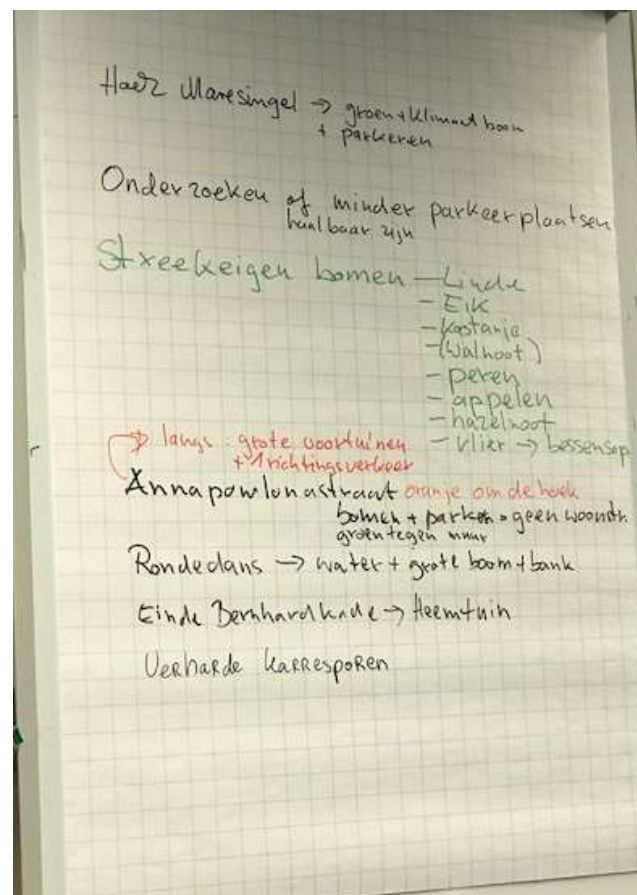 Haer Maresingel → groen + klimaat boom
+ parkeren
Onderzoeken of minder parkeerplaatsen
haalbaar zijn
Streekeigen bomen – Linde
– Eik
– kastanje
– (walnoot)
– peren
– appelen
– hazelnoot
– vlier → bessensap
→ langs grote voortuinen
+ 1 richtingsverkeer
Annapowlonastraat oranje om de hoek
bomen + parken = geen woonstr.
groen tegen muur
Rondedans → water + grote boom + bank
Einde Bernhardkade → Heemtuin
Verharde karresporen